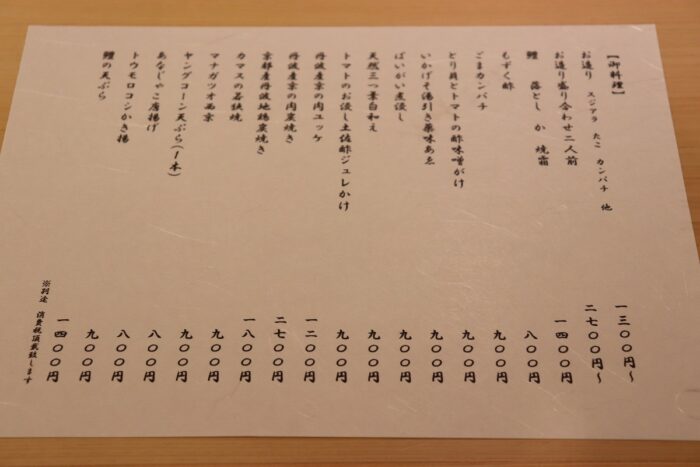 【御料理】
お造り スジアラ たこ カンパチ 他 一三〇〇円～
お造り盛り合わせ二人前 二七〇〇円～
鱧 落とし か 焼霜 一四〇〇円
もずく酢 八〇〇円
ごまカンパチ 九〇〇円
とり貝とトマトの酢味噌がけ 九〇〇円
いかげそ湯引き薬味あゑ 九〇〇円
ばいがい煮浸し 九〇〇円
天然三つ葉白和え 九〇〇円
トマトのお浸し土佐酢ジュレかけ 九〇〇円
丹波産京の肉ユッケ 一二〇〇円
丹波産京の肉炭焼き 二七〇〇円
京都産丹波地鶏炭焼き 一八〇〇円
カマスの若狭焼 九〇〇円
マナガツオ西京 九〇〇円
ヤングコーン天ぷら(1本) 八〇〇円
あなじゃこ唐揚げ 八〇〇円
トウモロコシかき揚 九〇〇円
鱧の天ぷら 一四〇〇円
※別途 消費税頂戴致します